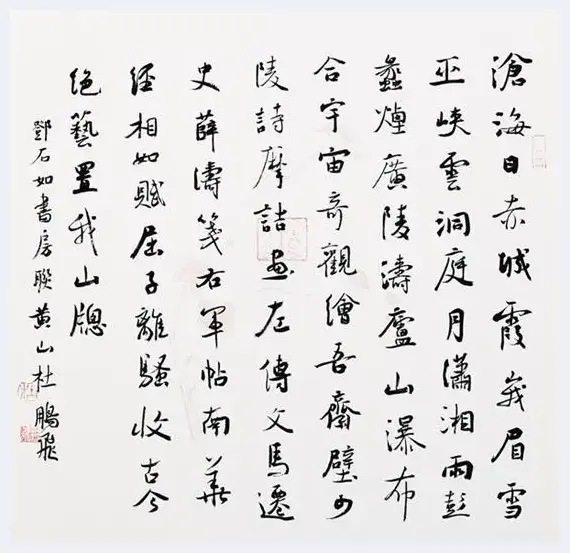 滄海日赤城霞峩眉雪
巫峽雲洞庭月瀟湘雨彭
蠡煙廣陵濤廬山瀑布
合宇宙奇觀繪吾齋壁少
陵詩摩詰畫左傳文馬遷
史薛濤箋右軍帖南華
經相如賦屈子離騷收古今
絕藝置我山牕
鄧石如書房聯黃山杜鵬飛